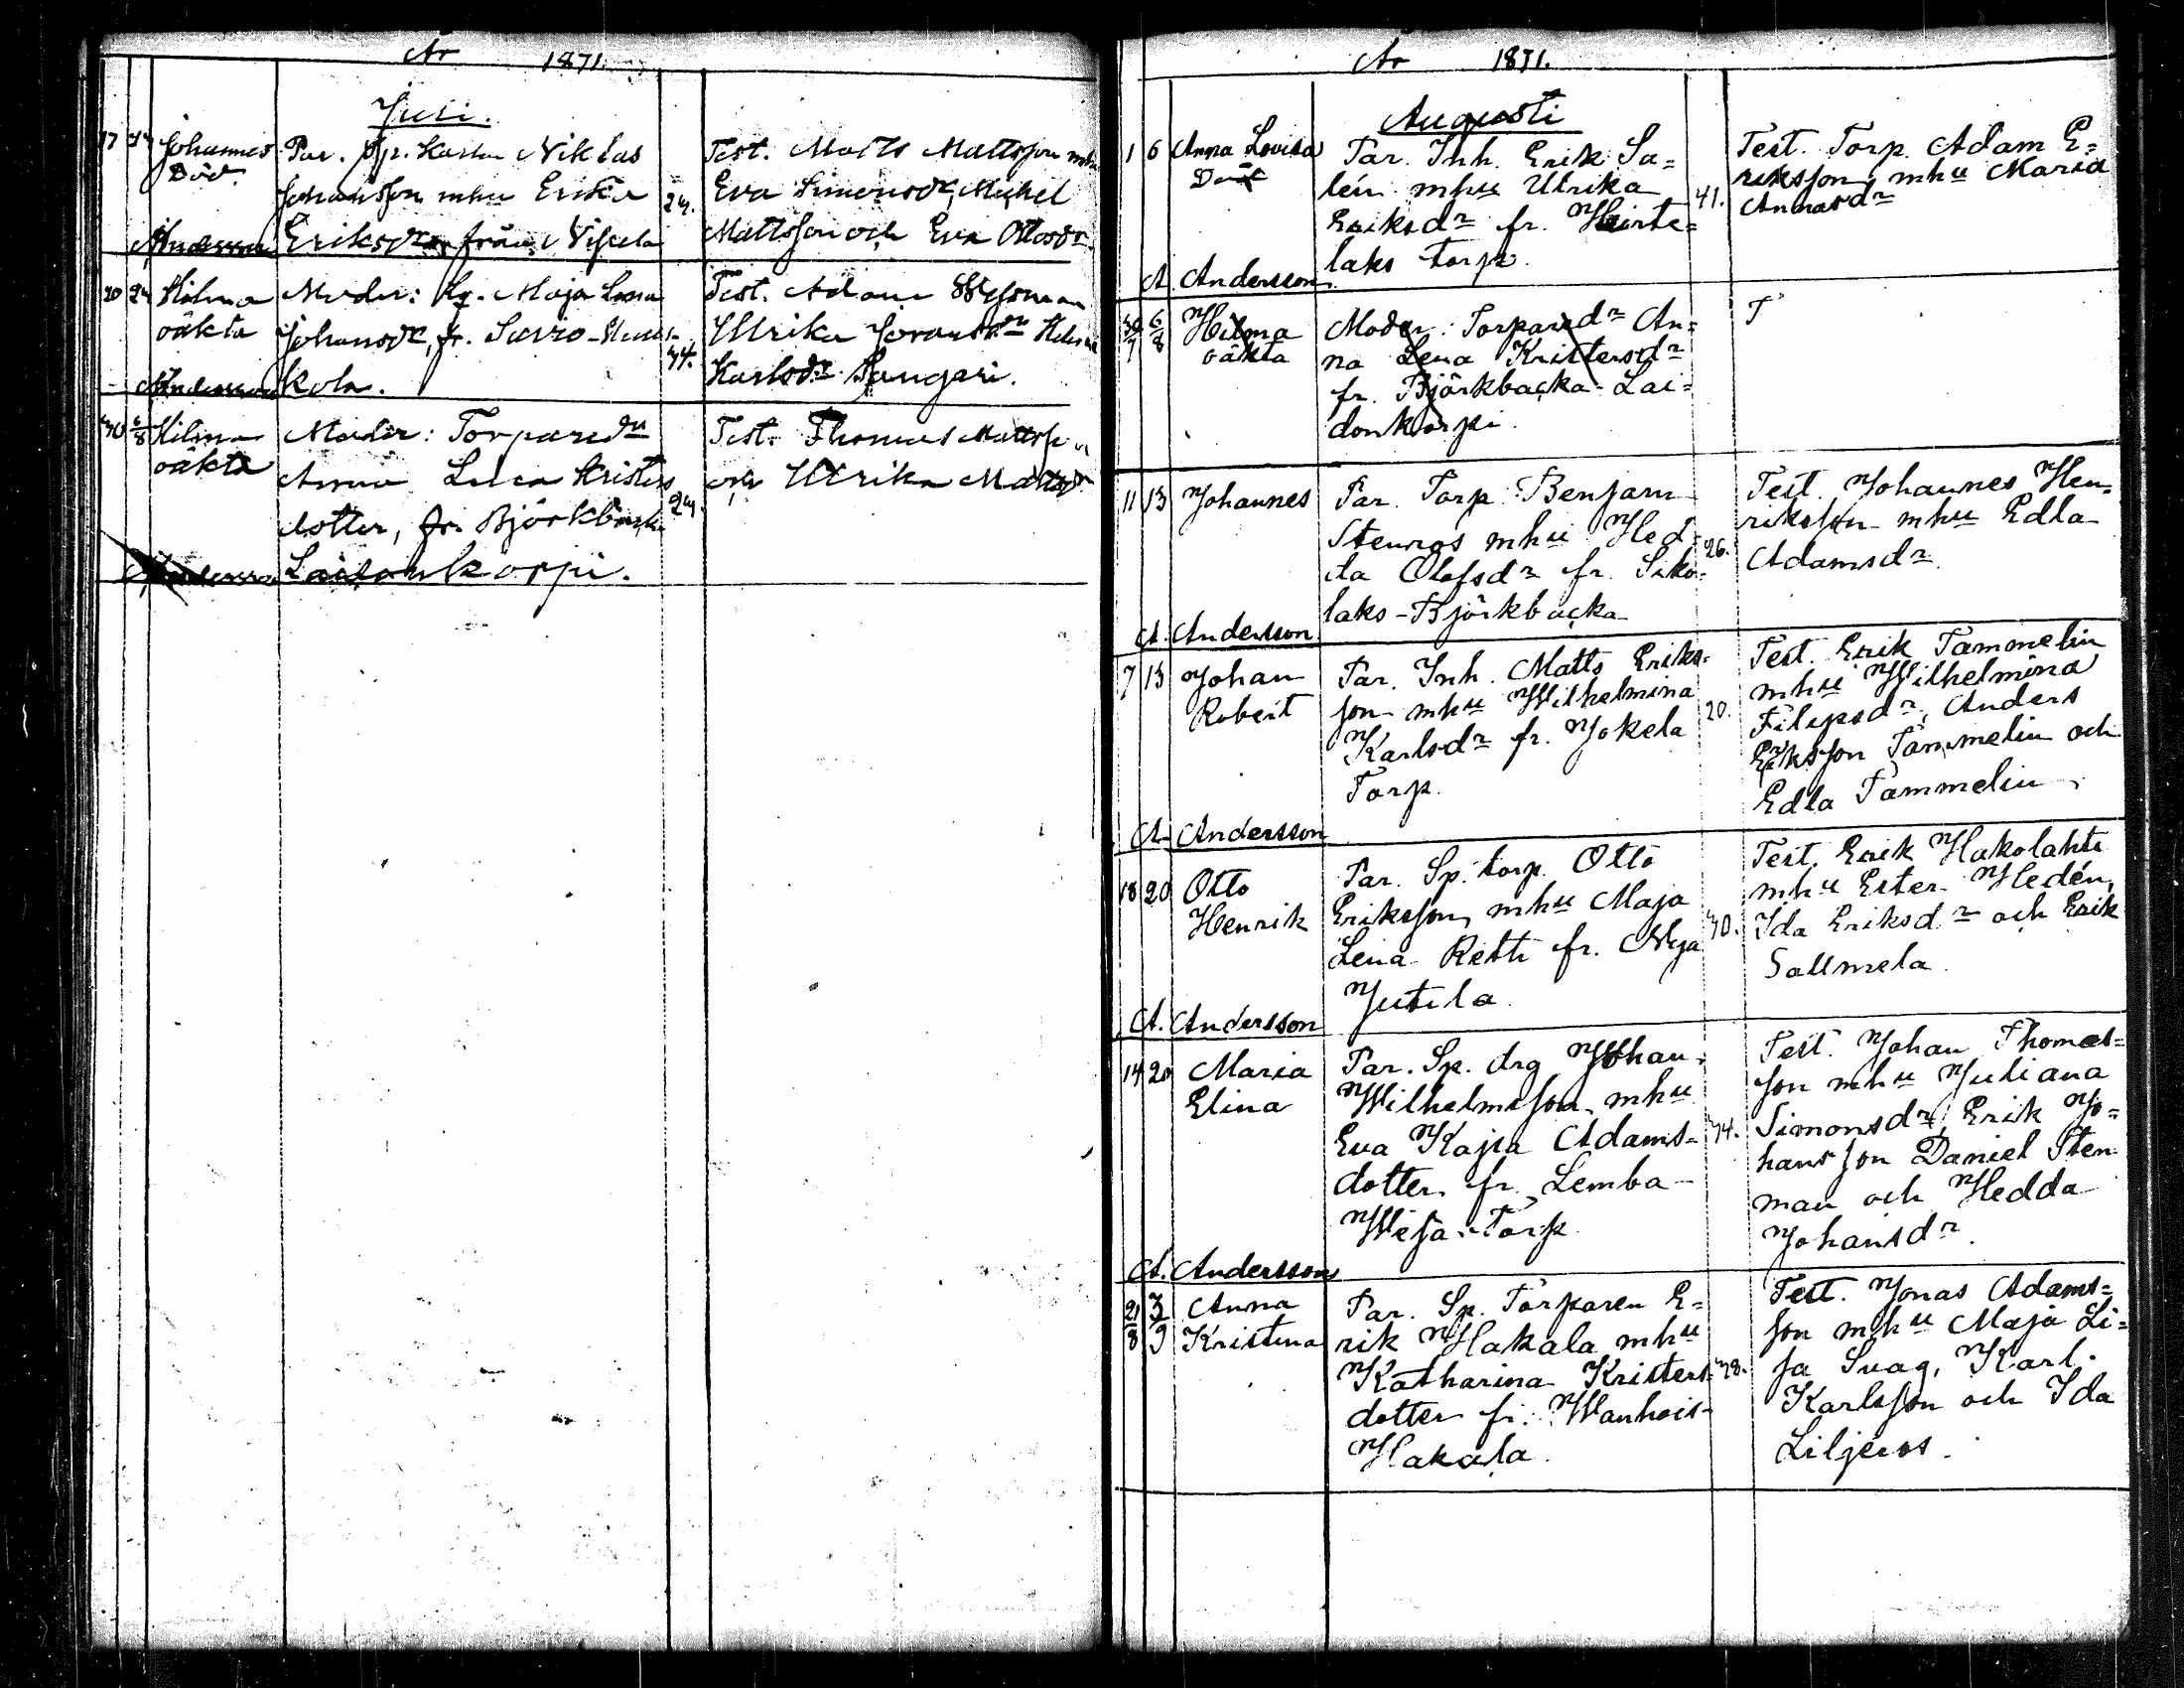 År 1871.
Juli.
17 Johannes Död. Par. Sp. Karlen Niklas
Johansson mhu Erika
Eriksdr från
Andersson
24.
Test. Matts Mattsson mhu
Eva Simonsdr, Michel
Mattsson och Eva Ottosdr
20 24 Hilma oäkta
Moder: Maja Lena
Johansdr, fr. Savio-
kola.
Andersson
44.
Test. Adam
Ulrika
Karlsdr Pangari.
30 6/8 Hilma oäkta
Moder: Torparedr
Anna Lena Kristers
dotter, fr. Björkbacka
Laidonkorpi.
Andersson
24.
Test. Thomas Mattsson
och Ulrika Mattsdr
År 1871.
Augusti
1 6 Anna Lovisa
Död
Par. Inh. Erik Sa=
lén mhu Ulrika
Eriksdr fr. Heirte=
laks torp.
A. Andersson
41.
Test. Torp. Adam E=
riksson mhu Maria
Annasdr
30/7 6/8 Hilma
oäkta
Moder: Torparedr An=
na Lena Kristersdr
fr. Björkbacka Lai=
donkorpi
T
11 13 Johannes
Par. Torp. Benjam
Stenros mhu Hed=
da Olofsdr fr. Siko=
laks-Björkbacka
A. Andersson
26.
Test. Johannes Hen=
riksson mhu Edla
Adamsdr.
7 13 Johan
Robert
Par. Inh. Matts Eriks=
son mhu Wilhelmina
Karlsdr fr. Jokela
Torp.
A. Andersson
20.
Test. Erik Tammelin
mhu Wilhelmina
Filipsdr, Anders
Eriksson Tammelin och
Edla Tammelin.
18 20 Otto
Henrik
Par. Sp. torp. Otto
Eriksson, mhu Maja
Lena Retti fr. Nya
Jutila.
A. Andersson
40.
Test. Erik Hakolahti
mhu Ester Hedén,
Ida Eriksdr och Erik
Sallmela.
14 20 Maria
Elina
Par. Sp. drg Johan
Wilhelmsson mhu
Eva Kajsa Adams=
dotter fr. Lemba
Wesa-Torp
A. Andersson
44.
Test. Johan Thomas=
son mhu Juliana
Simonsdr, Erik Jo=
hansson Daniel Sten=
man och Hedda
Johansdr.
21/8 3/9 Anna
Kristina
Par. Sp. Torparen E=
rik Hakala mhu
Katharina Kristers
dotter fr. Wanhois-
Hakala.
48.
Test. Jonas Adams=
son mhu Maja Li=
sa Svag, Karl
Karlsson och Ida
Liljeros.